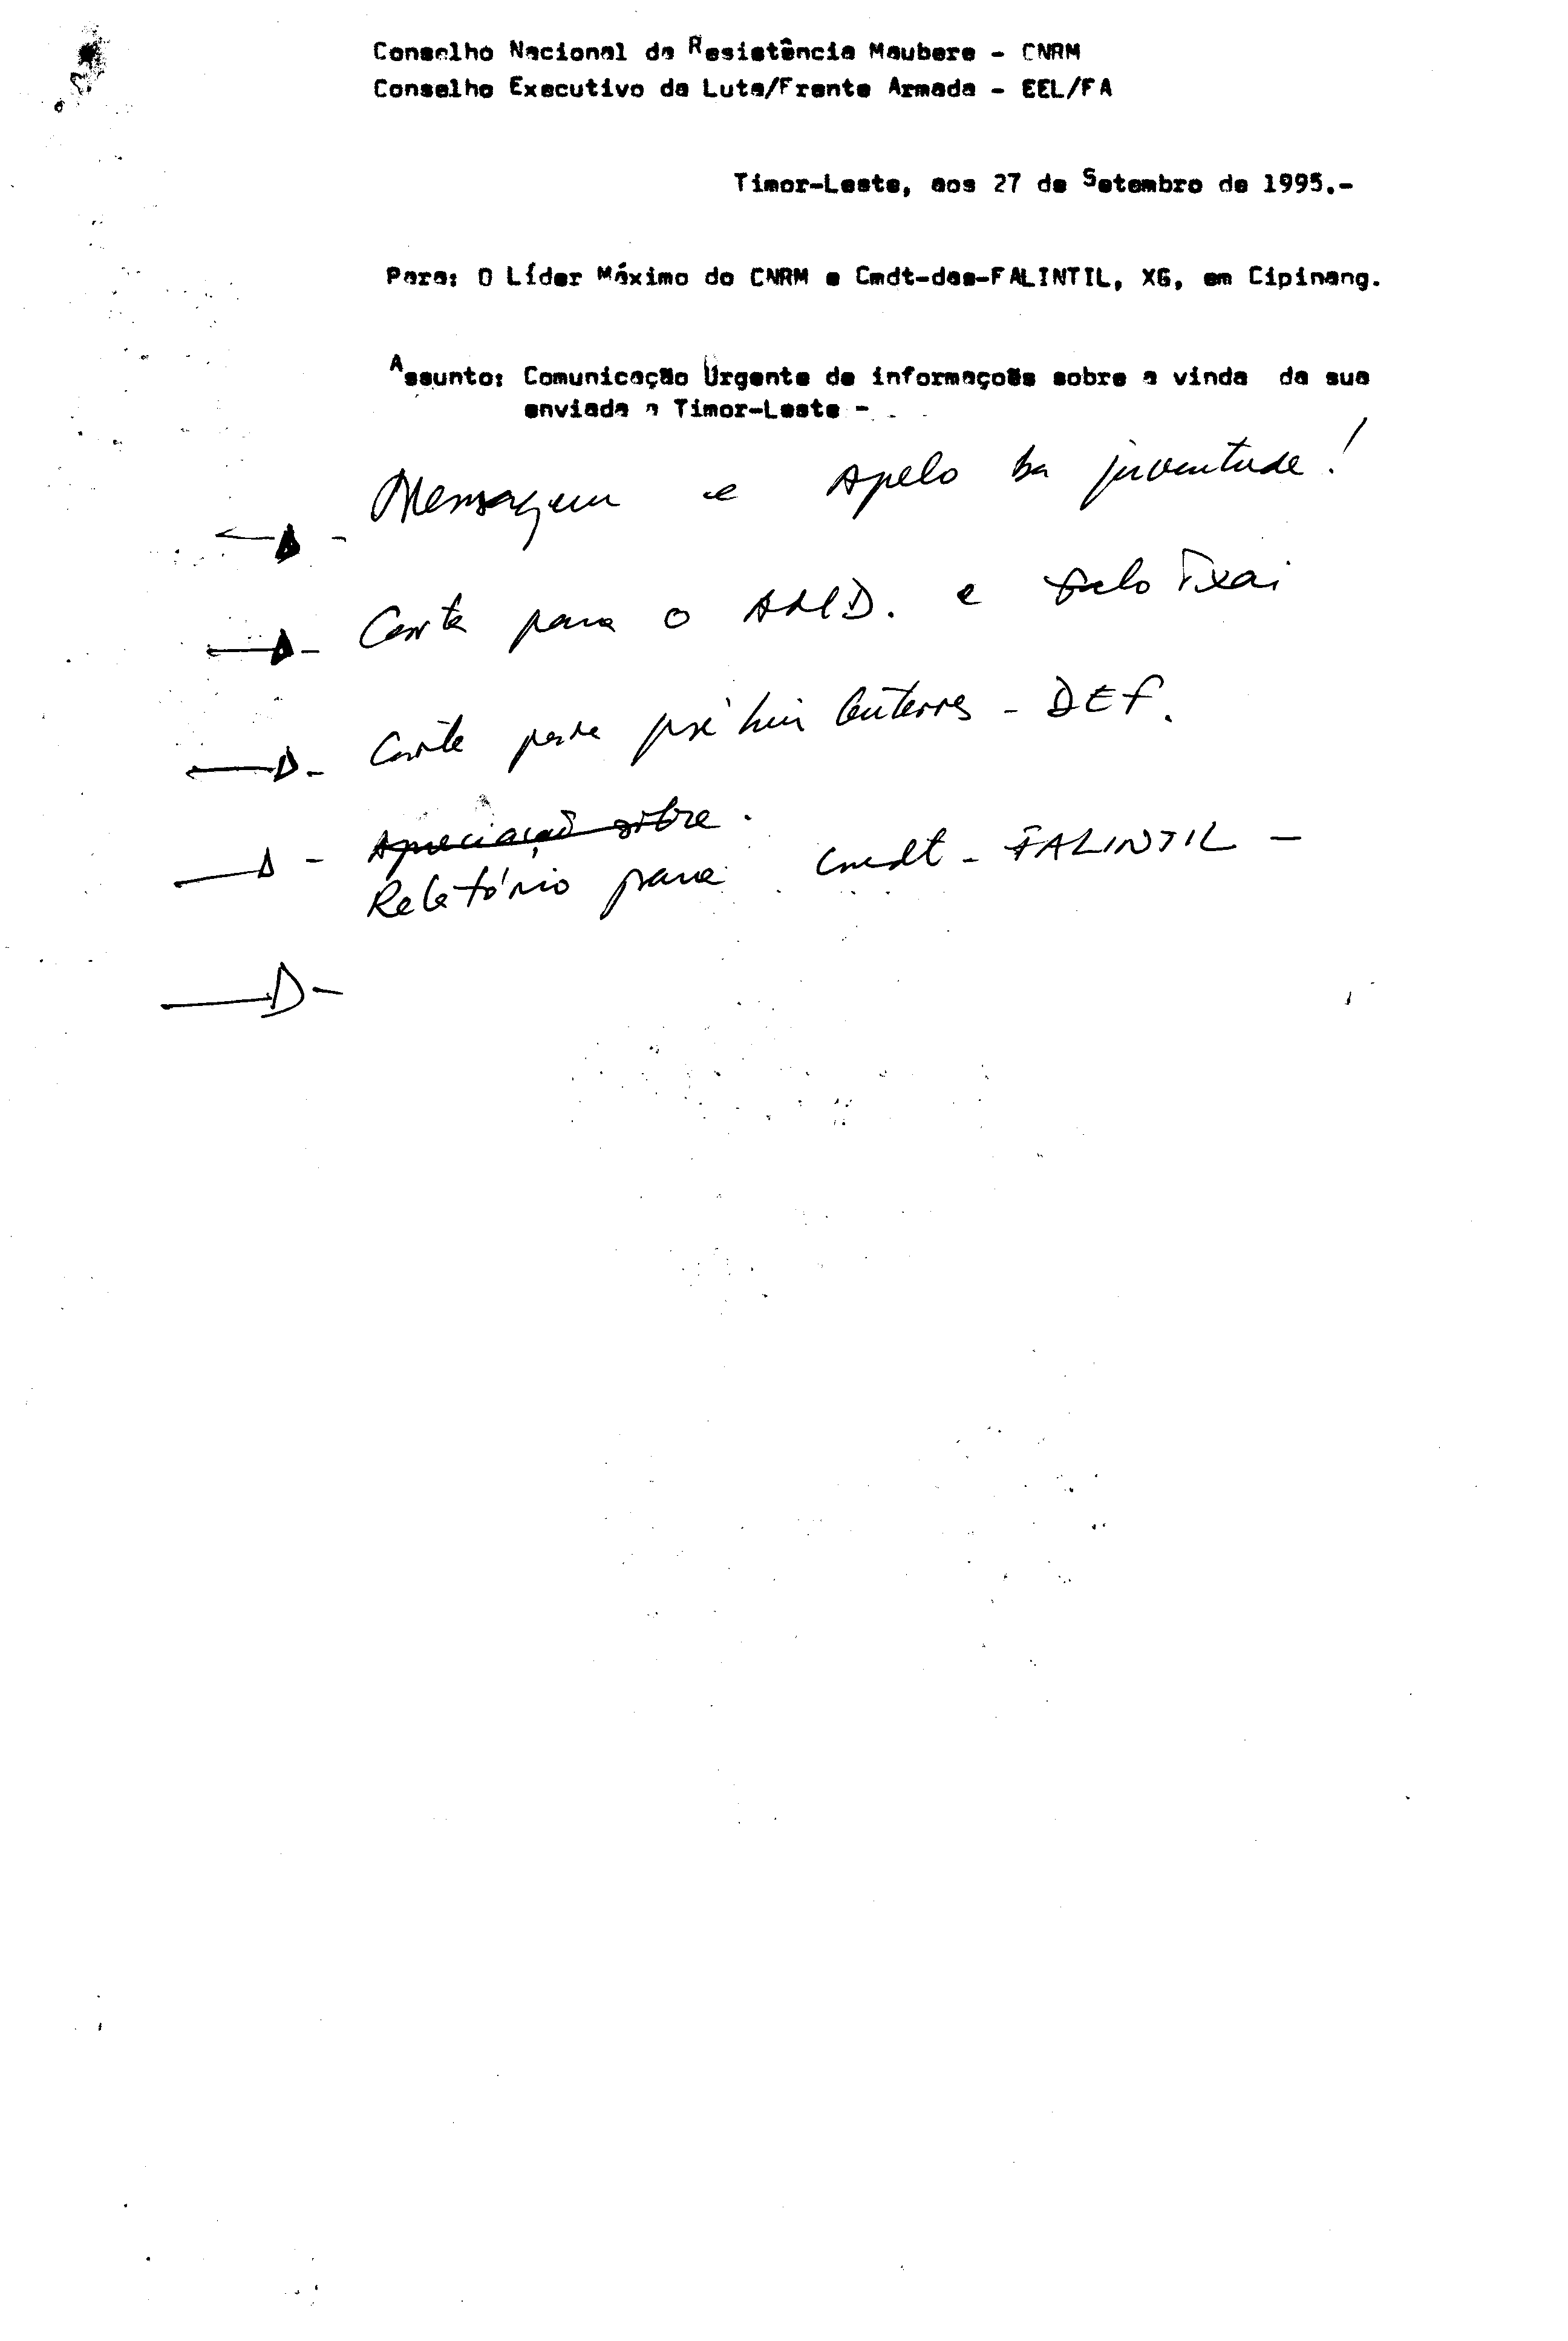 Conselho Nacional da Resistência Maubere - CNRM
Conselho Executivo da Luta/Frente Armada - EEL/FA
Timor-Leste, aos 27 de Setembro de 1995.-
Para: O Líder Máximo do CNRM e Cmdt-das-FALINTIL, XG, em Cipinang.
Assunto: Comunicação Urgente de informações sobre a vinda da sua
enviada a Timor-Leste -
Mensagem e Apelo ba juventude!
Carta para o e
Carta para José Luis Guterres - DEF.
Apreciação sôbre.
Relatório para Cmdt - FALINTIL -